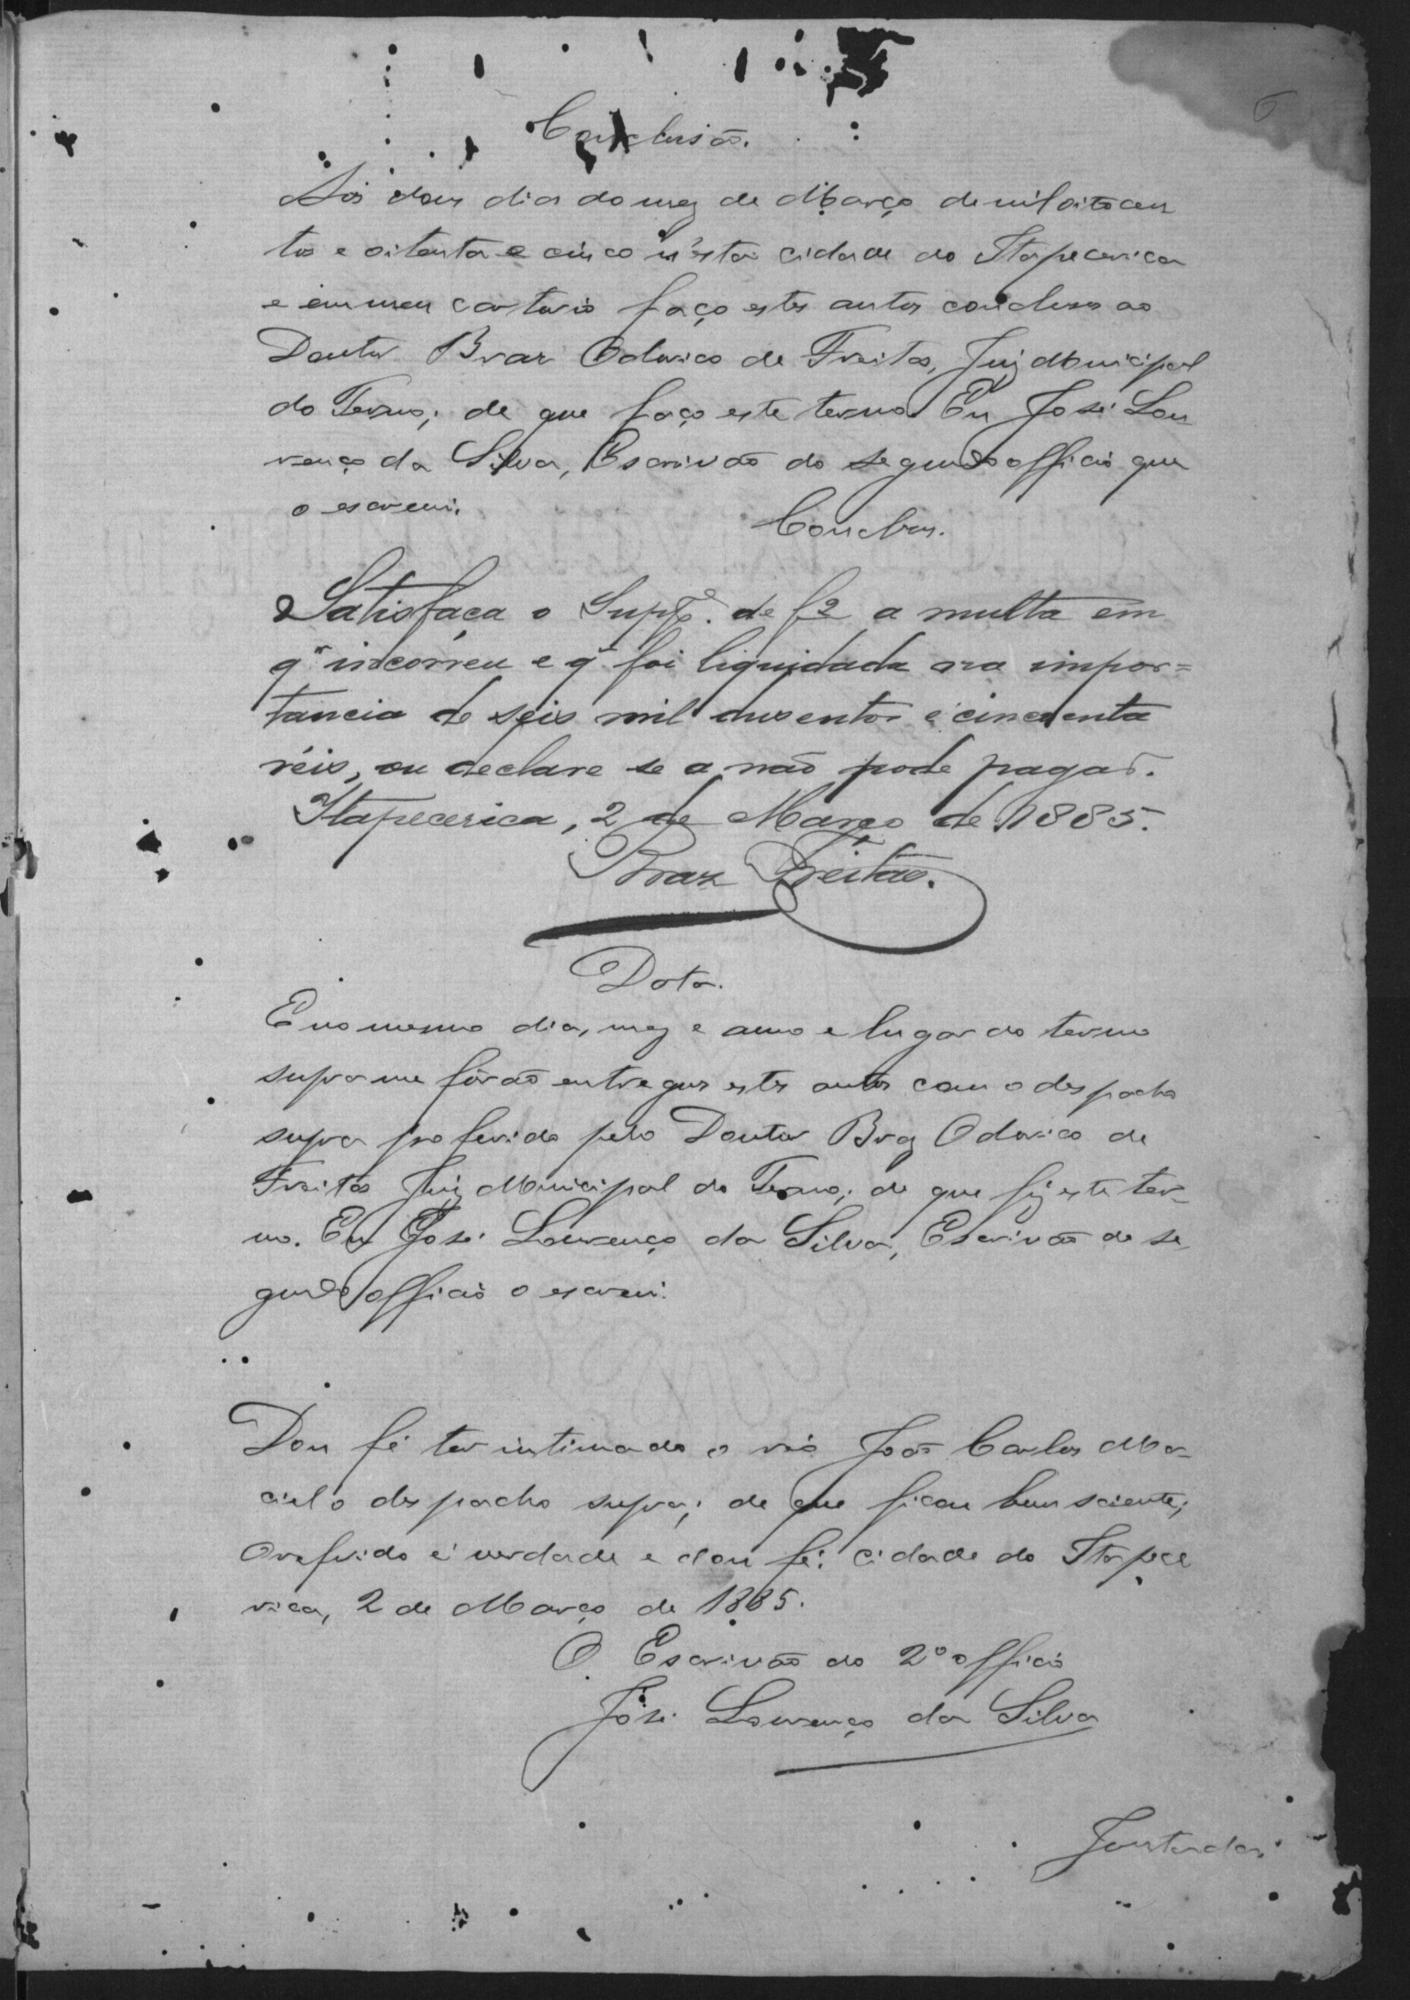 6
Conclusão.
Aos dous dias do mez de Março de mil oitocen
tos e oitenta e cinco n'esta cidade do Itapecerica
e em meu cartorio faço estes autos conclusos ao
Doutor Braz Odorico de Freitas, Juiz Municipal
do Termo; de que faço este termo. Eu José Lou
renço da Silva, Escrivão do segundo officio que
o escrevi.
Conclusos.
Satisfaça o Supp.e de f2 a multa em
q' incorreu e q' foi liquidada na impor=
tancia de seis mil dusentos e cincoenta
réis, ou declare se a não pode pagar.
Itapecerica, 2 de Março de 1885.
Braz Freitas.
Data.
E no mesmo dia, mez e anno e lugar do termo
supra me fôrão entregues estes autos com o despacho
supra proferido pelo Doutor Braz Odorico de
Freitas Juiz Municipal do Termo; de que fiz este ter-
mo. Eu José Lourenço da Silva, Escrivão do se
gundo officio o escrevi.
Dou fé ter intimado o réo João Carlos Ma-
ciel o despacho supra; de que ficou bem sciente;
O referido é verdade e dou fé. Cidade do Itapece
rica, 2 de Março de 1885.
O Escrivão do 2º officio
José Lourenço da Silva
Juntada.